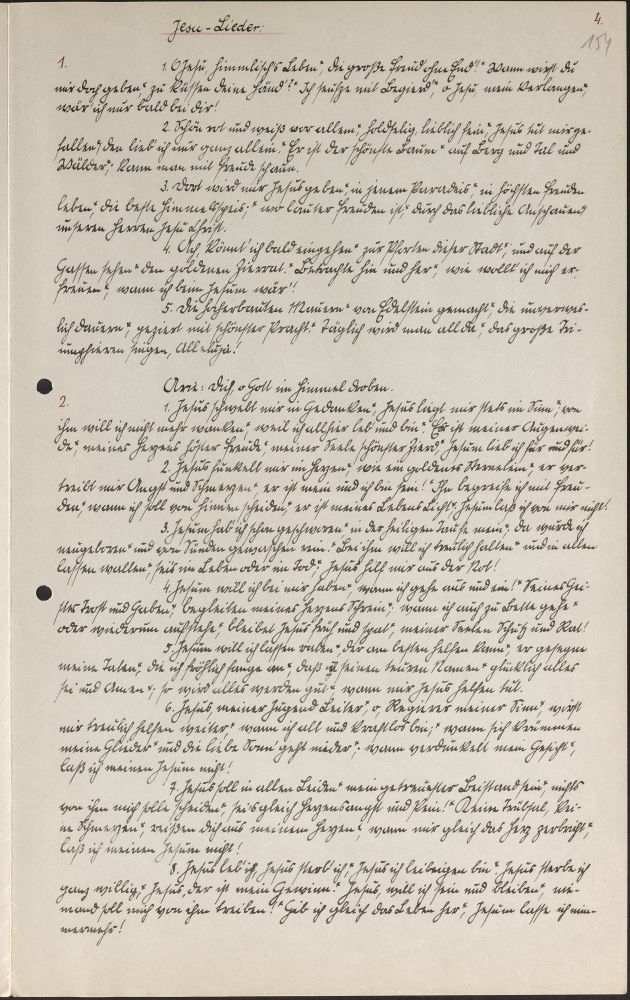 Jesu-Lieder:
4.
154
1.
1. O Jesu himmlisch's Leben“, die große Freud ohne End'!“ Wann wirst du
mir doch geben“, zu küssen deine Händ'?“ Ich seufze mit Begierd“, o Jesu, mein Verlangen“,
wär ich nur bald bei dir!
2. Schön rot und weiß vor allem“, holdselig, lieblich fein“, Jesus tut mir ge-
fallen“, den lieb' ich nur ganz allein.“ Er ist der schönste Baum“ auf Berg und Tal und
Wälder“, kann man mit Freude schaun.
3. Dort wird mir Jesus geben“, in jenem Paradeis“, in höchsten Freuden
leben“, die beste Himmelspeis;“ wo lauter Freuden ist“, durch das liebliche Anschauen“
unseren Herren Jesu Christ.
4. Ach, könnt' ich bald eingehen“ zur Pforten dieser Stadt“, und auf der
Gassen sehen“ den goldenen Zierrat.“ Betrachte hin und her“, wie wollt ich mich er-
freuen“, wann ich beim Jesum wär'!
5. Die hocherbauten Mauern“ von Edelstein gemacht“, die unverwes-
lich dauern“, geziert mit schönster Pracht.“ Täglich wird man allda“, das große Tri-
umphieren singen, Alleluja!
Arie: Dich, o Gott im Himmel droben.
2.
1. Jesus schwebt mir in Gedanken“, Jesus liegt mir stets im Sinn“, von
ihm will ich nicht mehr wanken“, weil ich allhier leb' und bin“, Er ist meiner Augenwei-
de“, meines Herzens höchster Freude“, meiner Seele schönster Zierd“, Jesum lieb' ich für und für!
2. Jesus funkelt mir im Herzen“, wie ein goldenes Sternelein“, er ver-
treibt mir Angst und Schmerzen“, er ist mein und ich bin sein!“ Ihn begreife ich mit Freu-
den“, wann ich soll von hinnen scheiden“, er ist meines Lebens Licht“, Jesum laß ich von mir nicht!
3. Jesum hab' ich schon geschworen“ in der heiligen Taufe mein“, da wurde ich
neugeboren“ und von Sünden gewaschen rein.“ Bei ihm will ich treulich halten“ und in allen
lassen walten“, sei's im Leben oder im Tod“, Jesus hilf mir aus der Not!
4. Jesum will ich bei mir haben“, wann ich gehe aus und ein!“ Seines Gei-
stes Trost und Gaben“, begleiten meines Herzens Schrein“, wann ich auch zu Bette gehe“
oder wiederum aufstehe“, bleibet Jesus früh und spat“, meiner Seelen Schutz und Rat!
5. Jesum will ich lassen raten“, der am besten helfen kann“, er gesegne
meine Taten“, die ich fröhlich fange an“, daß seinen teuren Namen“ glücklich alles
sei und Amen“, so wird alles werden gut“, wann mir Jesus helfen tut.
6. Jesus, meiner Jugend Leiter“, o, Regierer meiner Sinn“, wirst
mir treulich helfen weiter“ wann ich alt und kraftlos bin;“ wann sich krümmen
meine Glieder“ und die liebe Sonn' geht nieder“, wann verdunkelt mein Gesicht“,
laß ich meinen Jesum nicht!
7. Jesus soll in allen Leiden“ mein getreuester Beistand sein“, nichts
von ihm mich solle scheiden“, sei's gleich Herzensangst und Pein!“ Keine Trübsal, kei-
ne Schmerzen“, reißen dich aus meinem Herzen“, wann mir gleich das Herz zerbricht“,
laß ich meinen Jesum nicht!
8. Jesus leb' ich, Jesus sterb' ich“, Jesus ich leibeigen bin“ Jesus sterbe ich
ganz willig“, Jesus, der ist mein Gewinn.“ Jesus, will ich sein und bleiben“, nie-
mand soll mich von ihm treiben!“ Geb' ich gleich das Leben her“, Jesum lasse ich nim-
mermehr!